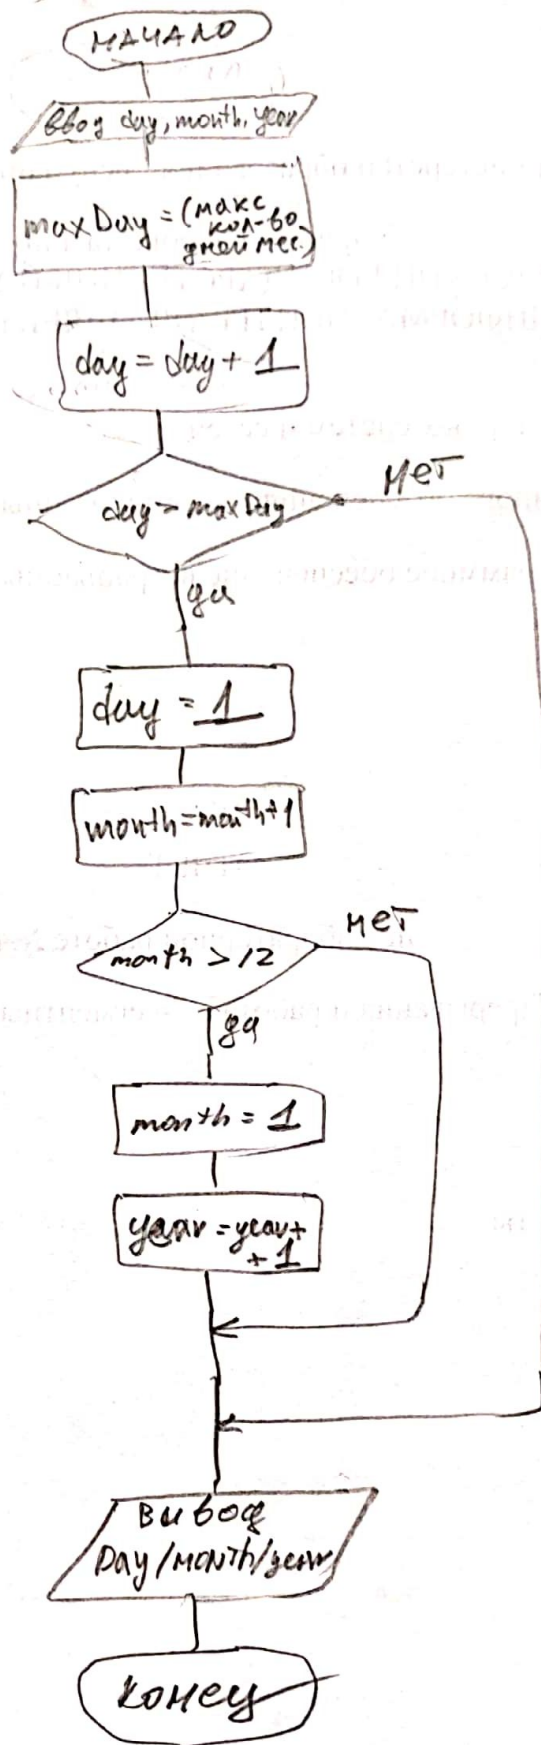 НАЧАЛО
Ввод day, month, year
maxDay = (макс
кол-во
дней мес.)
day = day + 1
day > maxDay
нет
да
day = 1
month = month + 1
month > 12
нет
да
month = 1
year = year +
+ 1
вывод
Day/month/year
конец